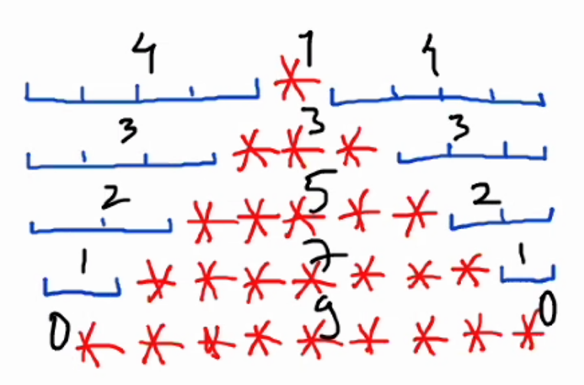 4 1 4
*
3 3 3
* * *
2 5 2
* * * * *
1 7 1
* * * * * * *
0 9 0
* * * * * * * * *